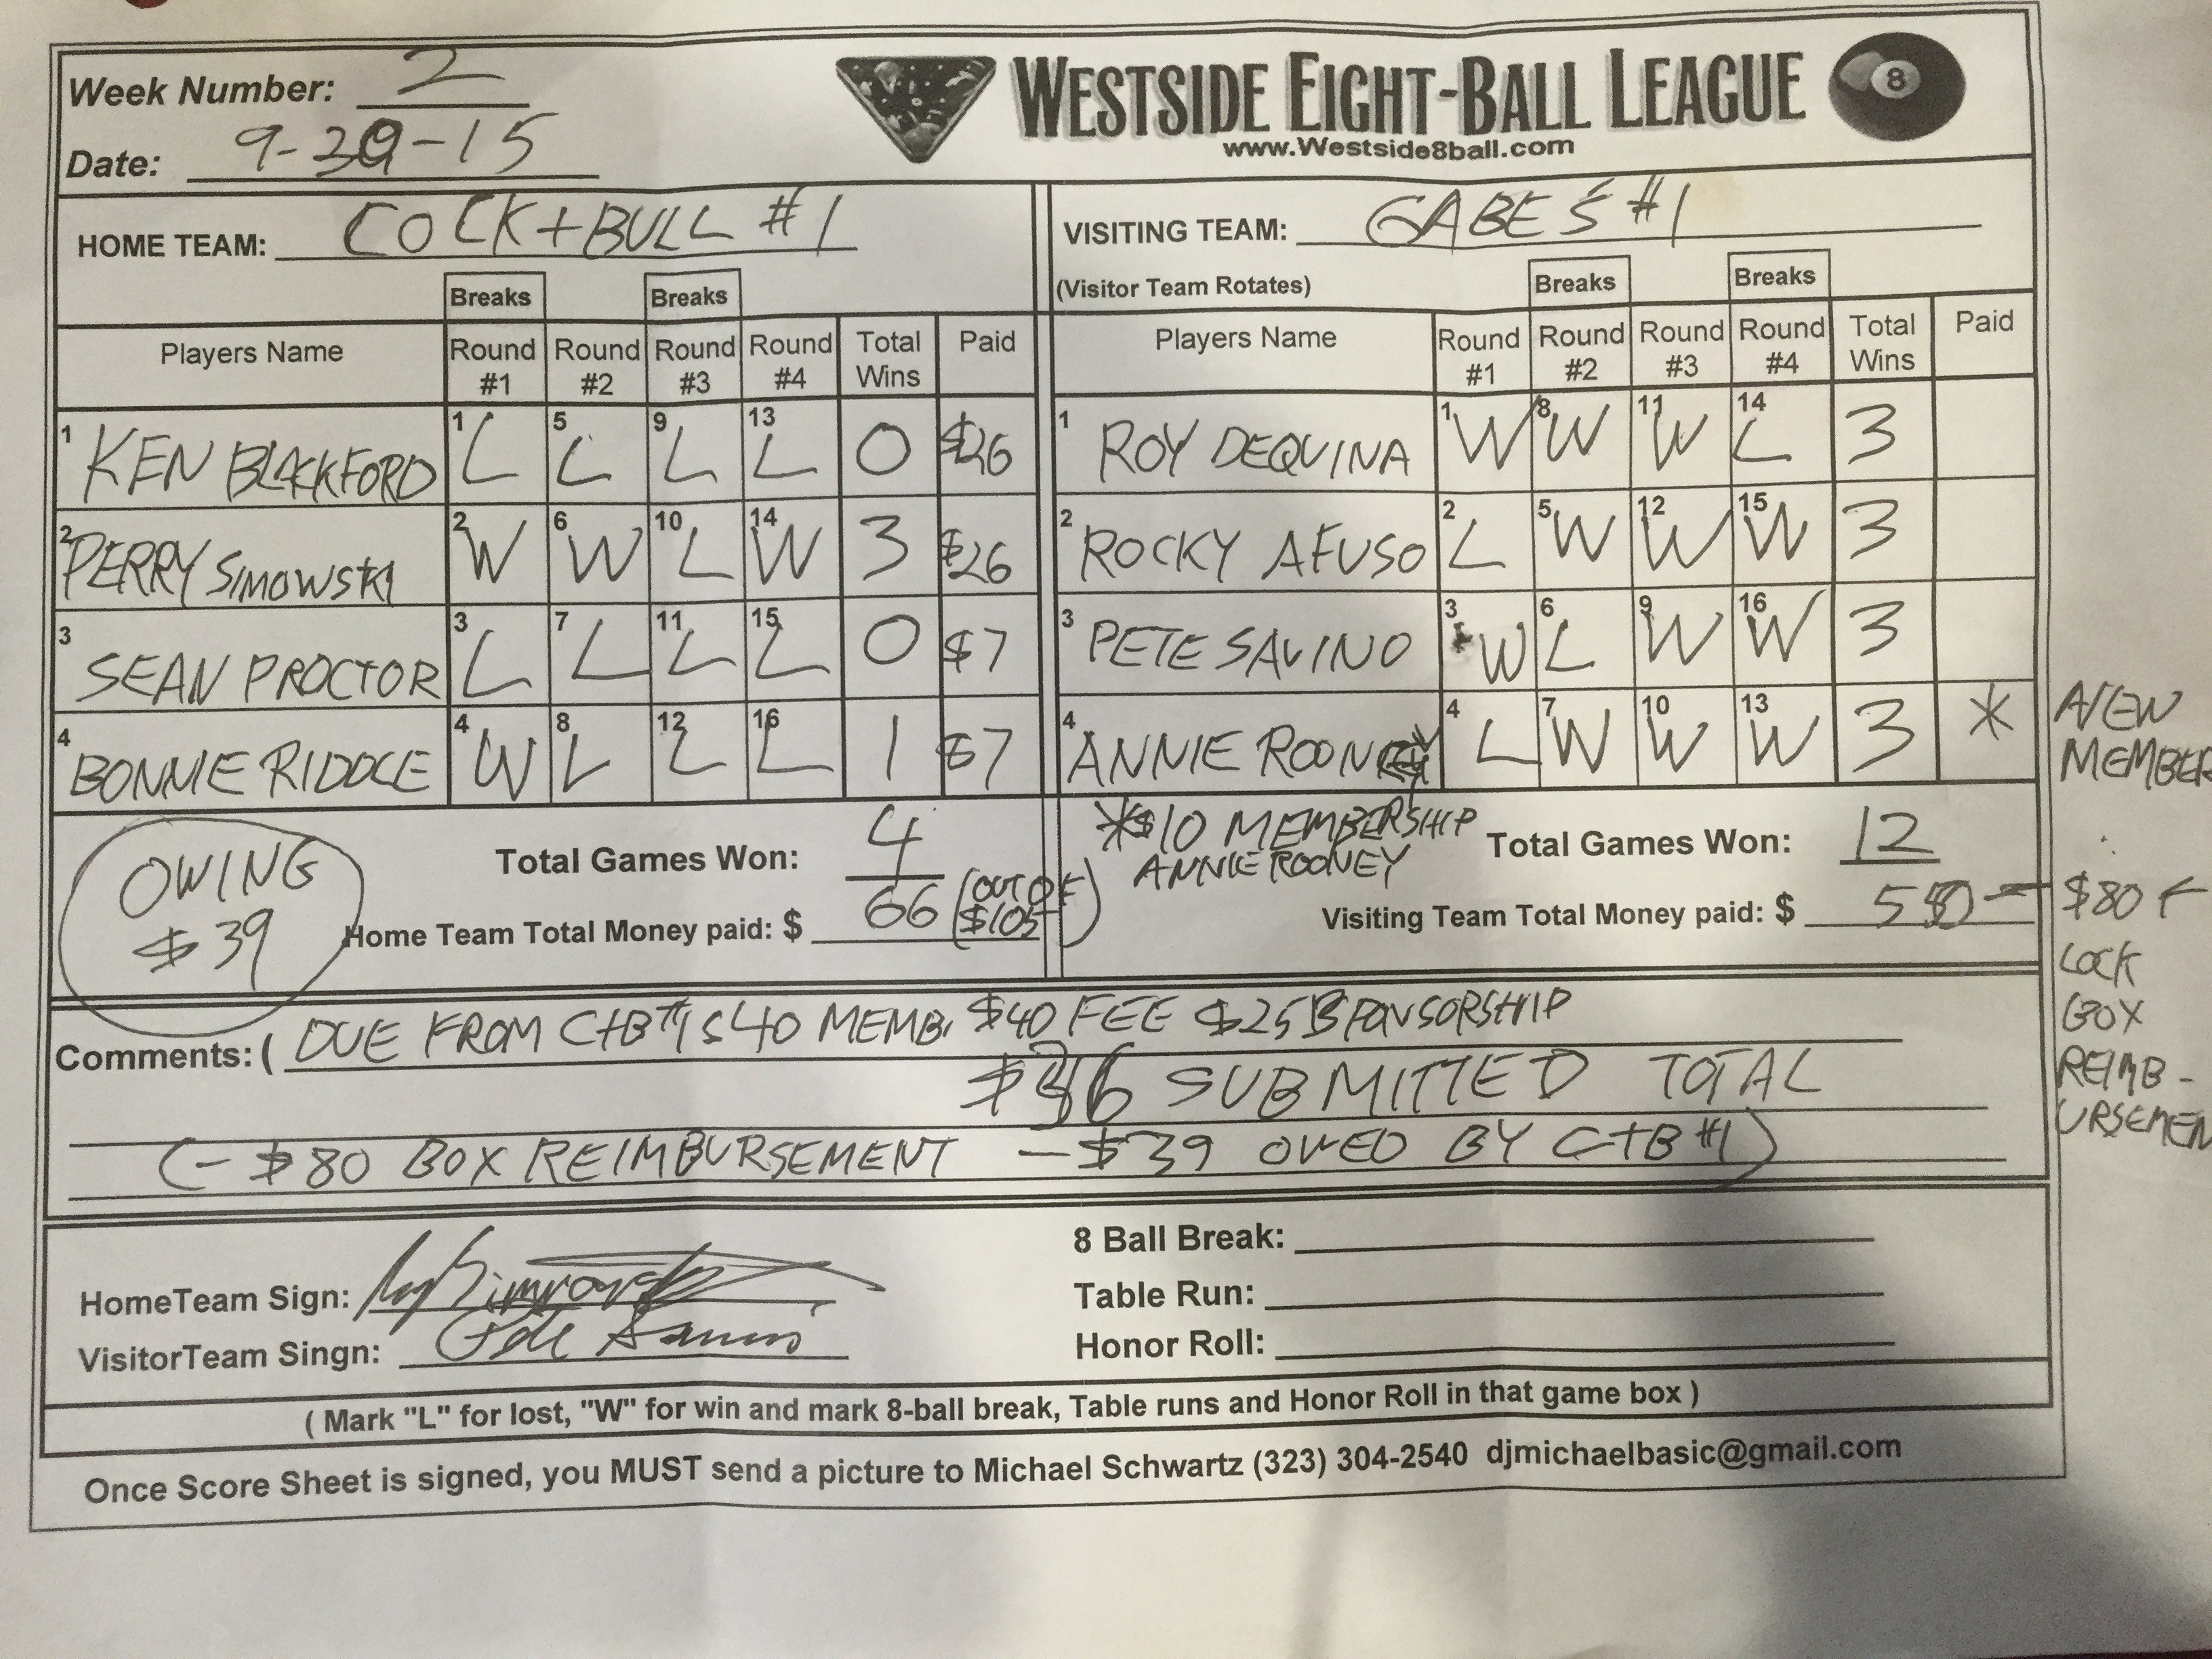 Week Number: 2
Date: 9-29-15
WESTSIDE EIGHT-BALL LEAGUE 8
www.Westside8ball.com
HOME TEAM: COCK+BULL #1
VISITING TEAM: GABE'S #1
(Visitor Team Rotates)
Breaks Breaks Breaks Breaks
Players Name Round #1 Round #2 Round #3 Round #4 Total Wins Paid Players Name Round #1 Round #2 Round #3 Round #4 Total Wins Paid
1 KEN BLACKFORD 1 L 5 L 9 L 13 L 0 $26 1 ROY DEQUINA 1 W 8 W 11 W 14 L 3
2 PERRY SIMOWSKI 2 W 6 W 10 L 14 W 3 $26 2 ROCKY AFUSO 2 L 5 W 12 W 15 W 3
3 SEAN PROCTOR 3 L 7 L 11 L 15 L 0 $7 3 PETE SAVINO 3 W 6 L 9 W 16 W 3
4 BONNIE RIDDLE 4 W 8 L 12 L 16 L 1 $7 4 ANNIE ROONEY 4 L 7 W 10 W 13 W 3 * NEW
MEMBER
OWING
$39
Total Games Won: 4
Home Team Total Money paid: $ 66 (OUT OF $105)
*$10 MEMBERSHIP
ANNIE ROONEY
Total Games Won: 12
Visiting Team Total Money paid: $ - $80
LOCK
BOX
REIMB-
URSEMEN
Comments: ( DUE FROM C+B #1 $40 MEMB. $40 FEE $25 SPONSORSHIP
SUBMITTED TOTAL
(- $80 BOX REIMBURSEMENT - $39 OWED BY C+B #1)
HomeTeam Sign:
VisitorTeam Singn:
8 Ball Break:
Table Run:
Honor Roll:
( Mark "L" for lost, "W" for win and mark 8-ball break, Table runs and Honor Roll in that game box )
Once Score Sheet is signed, you MUST send a picture to Michael Schwartz (323) 304-2540 djmichaelbasic@gmail.com